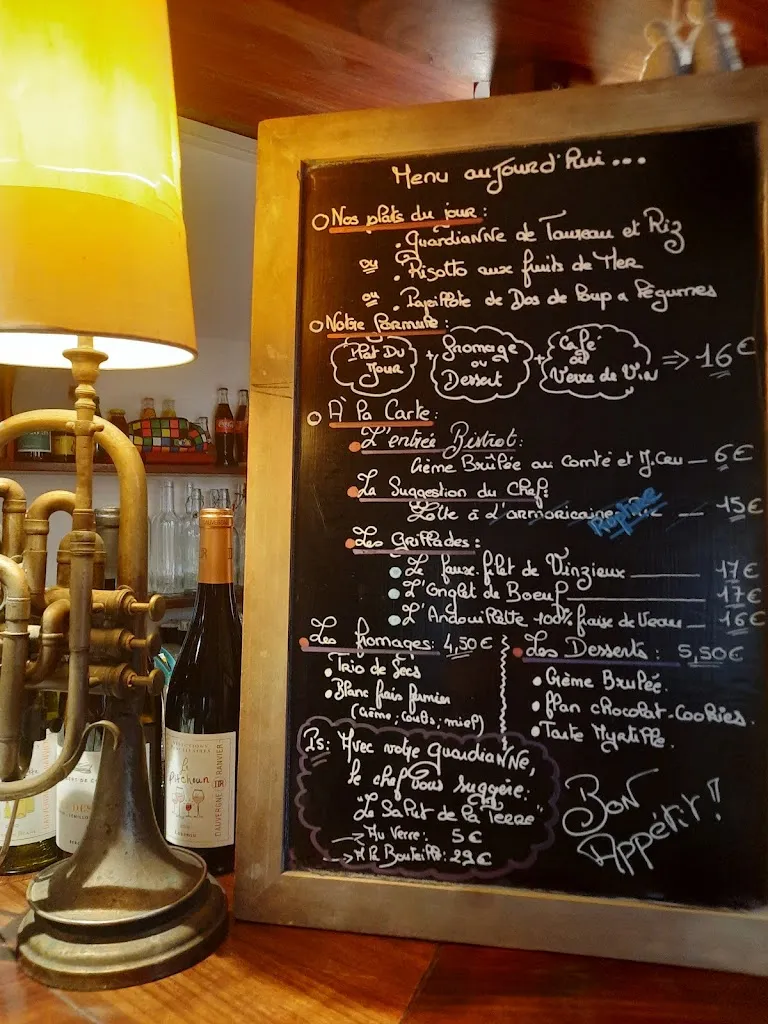 Menu aujourd'hui...
Nos plats du jour :
. GuardianNe de Taureau et Riz
ou . Risotto aux fruits de Mer
ou . Papillote de Dos de loup a légumes
Notre formule :
Plat Du Jour + fromage ou Dessert + Café ou Verre de Vin => 16€
À la Carte :
L'entrée Bistrot :
Crème Brûlée au Comté et M.Ceau — 6€
La Suggestion du Chef :
Lotte à l'armoricaine — 15€
Les Grillades :
Le faux filet de Vinzieux — 17€
L'Onglet de Boeuf — 17€
L'Andouillette 100% fraise de Veau — 16€
Les fromages : 4,50€
. Trio de Secs
. Blanc frais fermier
(Crème, coulis, miel)
Les Desserts : 5,50€
. Crème Brulée.
. flan chocolat-cookies.
. Tarte Myrtille.
Ps : Avec notre GuardianNe,
le chef vous suggère :
"Le Salut de la Terre"
→ Au Verre : 5€
→ A la Bouteille : 29€
Bon
Appétit !
Pitcheun
DAUVERGNE RANVIER